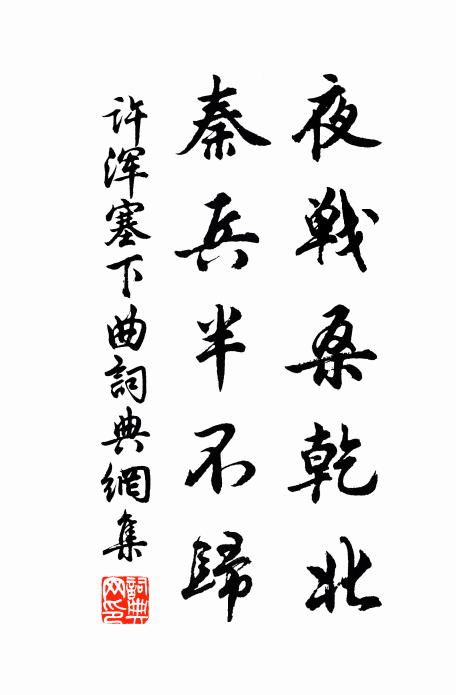 夜戰桑乾北
秦兵半不歸
许渾塞下曲詞典網集
詞典网印